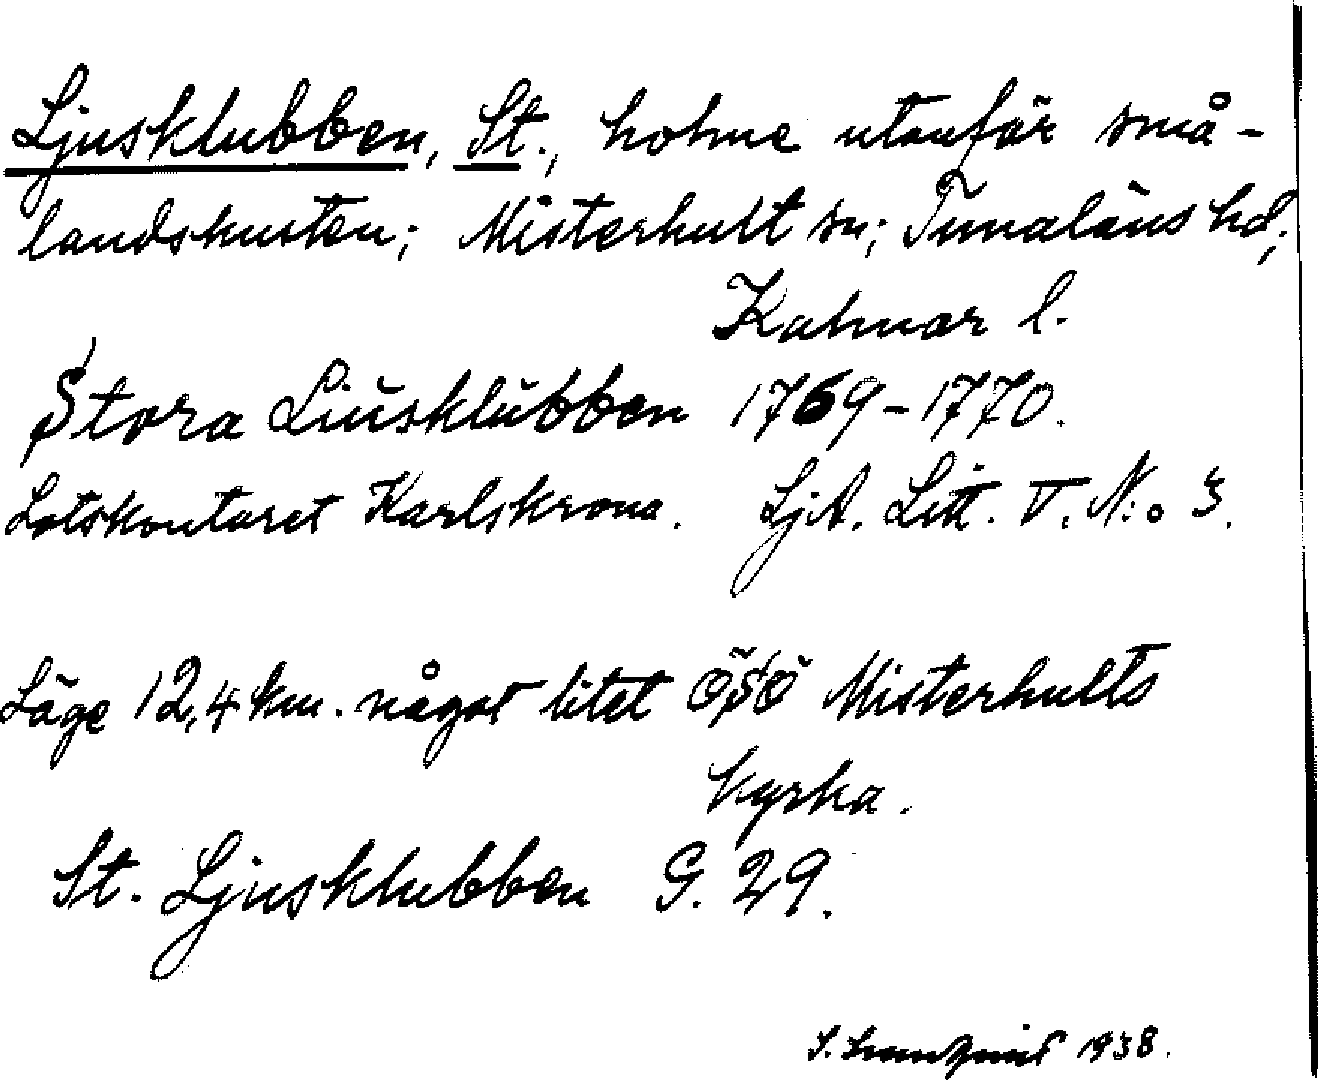 Ljusklubben, St., holme utanför små-
landskusten; Misterhult sn; Tunaläns hd;
Kalmar l.
Stora Liusklubben 1769-1770.
Lotskontoret Karlskrona. LjA. Litt. V. N:o 3.
Läge 12,4 km. något litet ÖSÖ Misterhults
kyrka.
St. Ljusklubben G. 29.
S. 1938.